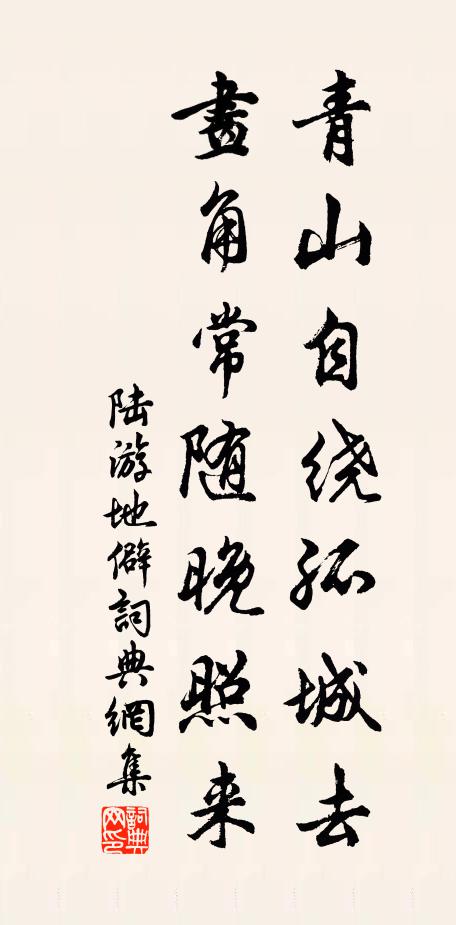 青山自绕孤城去
畫角常随晚照来
陆游地僻詞典網集
詞典网印